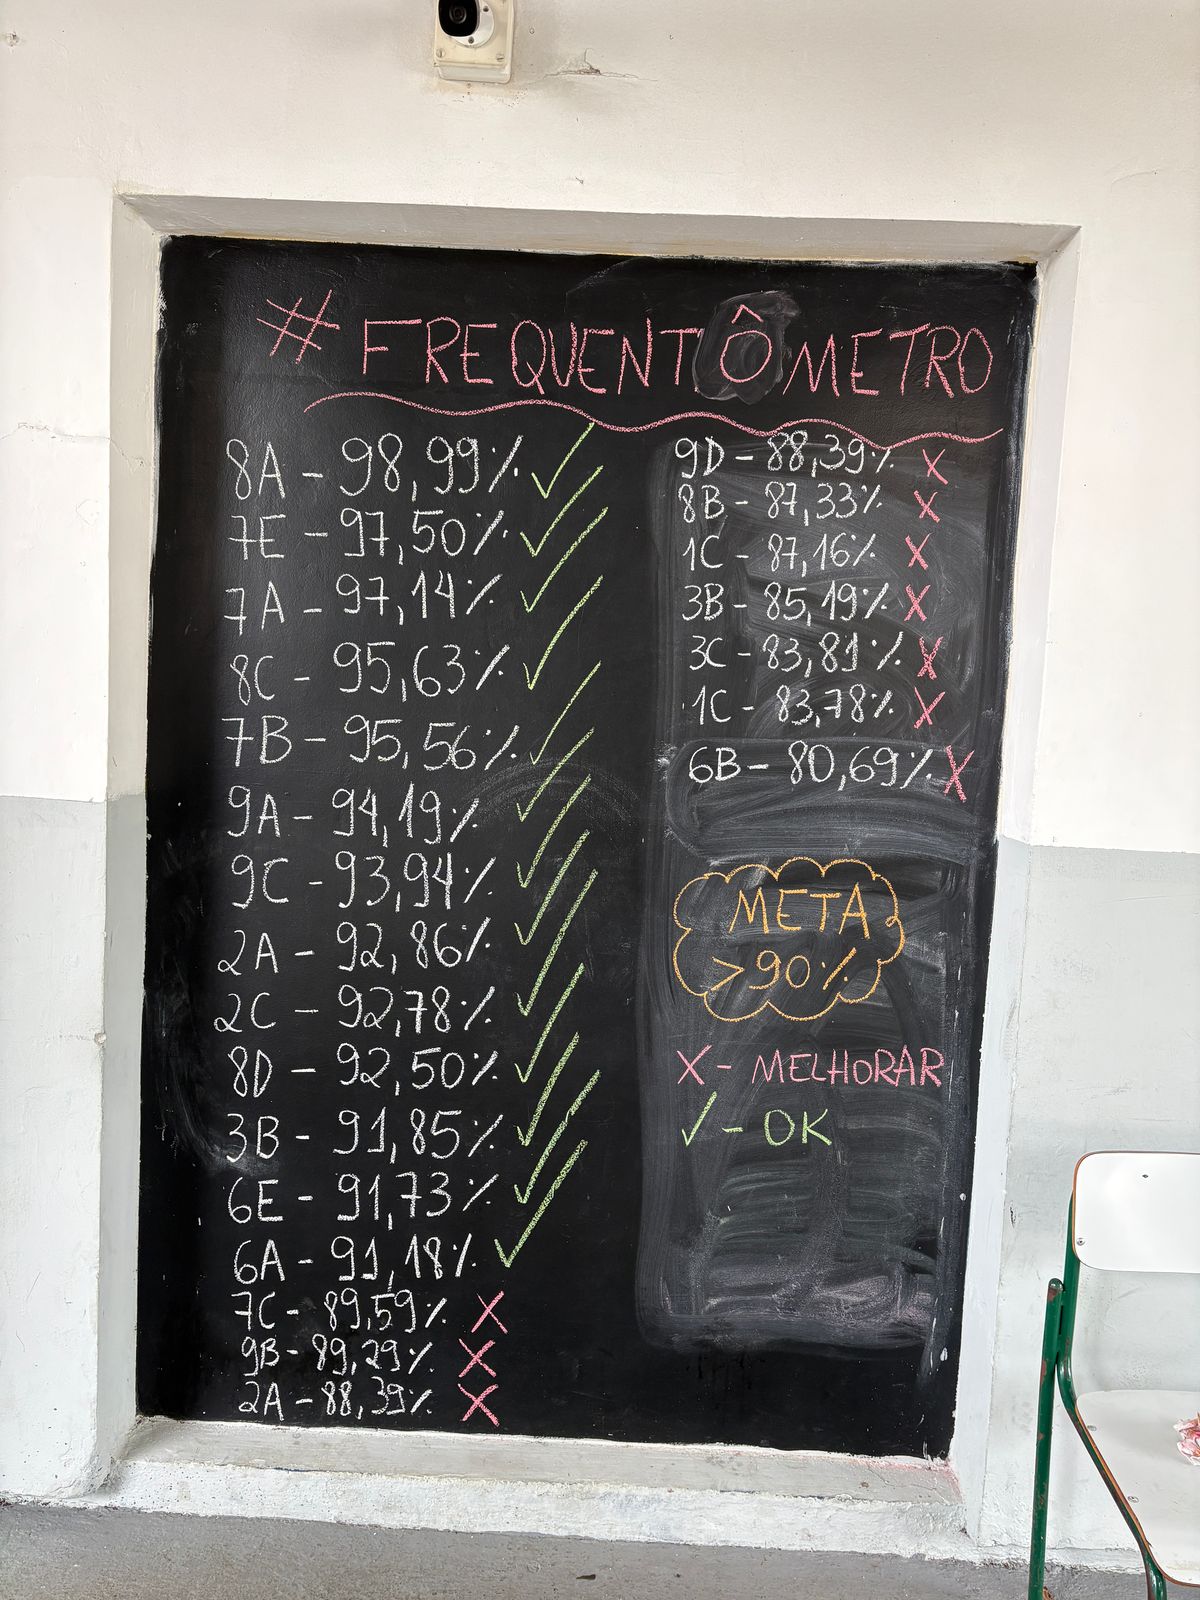 # FREQUENTÔMETRO
8A - 98,99%
7E - 97,50%
7A - 97,14%
8C - 95,63%
7B - 95,56%
9A - 94,19%
9C - 93,94%
2A - 92,86%
2C - 92,78%
8D - 92,50%
3B - 91,85%
6E - 91,73%
6A - 91,18%
7C - 89,59%
9B - 89,29%
2A - 88,39%
9D - 88,39%
8B - 87,33%
1C - 87,16%
3B - 85,19%
3C - 83,81%
1C - 83,78%
6B - 80,69%
META
>90%
X - MELHORAR
✓ - OK